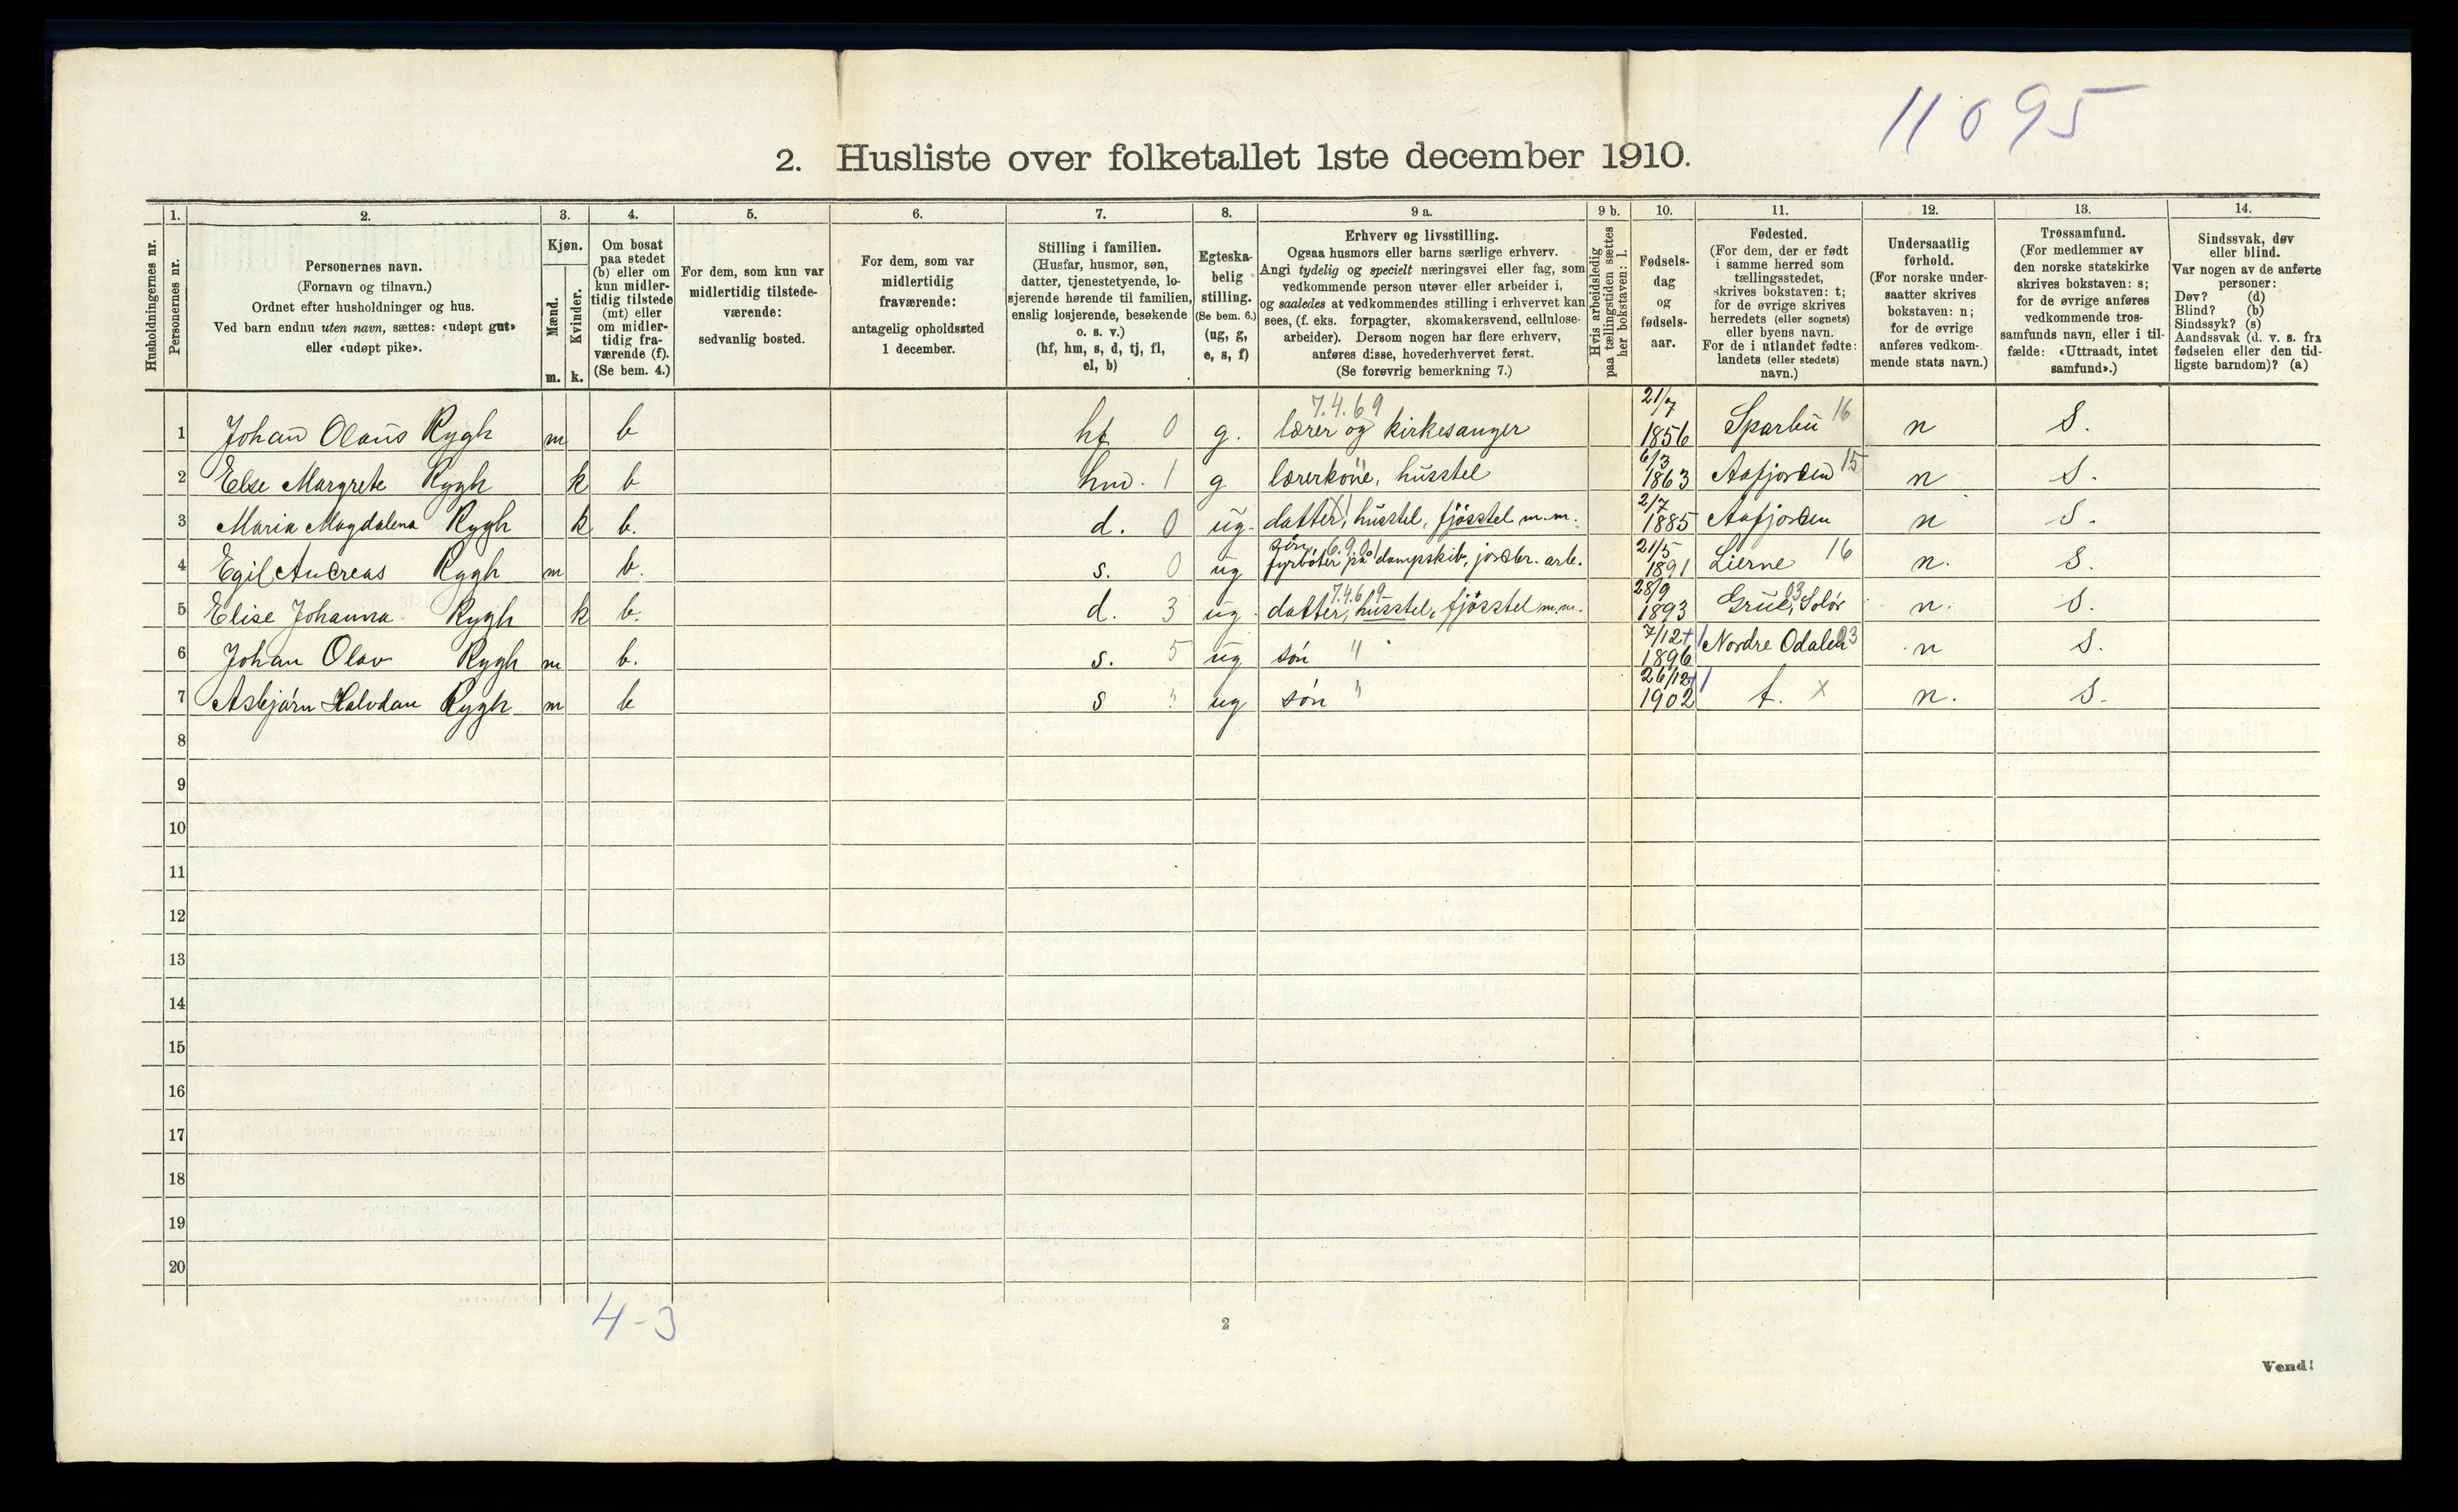 11095
2. Husliste over folketallet 1ste december 1910.
Husholdningernes nr.
1.
Personernes nr.
2.
Personernes navn.
(Fornavn og tilnavn.)
Ordnet efter husholdninger og hus.
Ved barn endnu uten navn, sættes: «udøpt gut»
eller «udøpt pike».
3.
Kjøn.
Mænd.
Kvinder.
m. k.
4.
Om bosat
paa stedet
(b) eller om
kun midler-
tidig tilstede
(mt) eller
om midler-
tidig fra-
værende (f).
(Se bem. 4.)
5.
For dem, som kun var
midlertidig tilstede-
værende:
sedvanlig bosted.
6.
For dem, som var
midlertidig
fraværende:
antagelig opholdssted
1 december.
7.
Stilling i familien.
(Husfar, husmor, søn,
datter, tjenestetyende, lo-
sjerende hørende til familien,
enslig losjerende, besøkende
o. s. v.)
(hf, hm, s, d, tj, fl,
el, b)
8.
Egteska-
belig
stilling.
(Se bem. 6.)
(ug, g,
e, s, f)
9 a.
Erhverv og livsstilling.
Ogsaa husmors eller barns særlige erhverv.
Angi tydelig og specielt næringsvei eller fag, som
vedkommende person utøver eller arbeider i,
og saaledes at vedkommendes stilling i erhvervet kan
sees, (f. eks. forpagter, skomakersvend, cellulose-
arbeider). Dersom nogen har flere erhverv,
anføres disse, hovederhvervet først.
(Se forøvrig bemerkning 7.)
9 b.
Hvis arbeidsledig
paa tællingstiden sættes
her bokstaven: l.
10.
Fødsels-
dag
og
fødsels-
aar.
11.
Fødested.
(For dem, der er født
i samme herred som
tællingsstedet,
skrives bokstaven: t;
for de øvrige skrives
herredets (eller sognets)
eller byens navn.
For de i utlandet fødte:
landets (eller stedets)
navn.)
12.
Undersaatlig
forhold.
(For norske under-
saatter skrives
bokstaven: n;
for de øvrige
anføres vedkom-
mende stats navn.)
13.
Trossamfund.
(For medlemmer av
den norske statskirke
skrives bokstaven: s;
for de øvrige anføres
vedkommende tros-
samfunds navn, eller i til-
fælde: «Uttraadt, intet
samfund».)
14.
Sindssvak, døv
eller blind.
Var nogen av de anførte
personer:
Døv? (d)
Blind? (b)
Sindssyk? (s)
Aandssvak (d. v. s. fra
fødselen eller den tid-
ligste barndom)? (a)
7.4.69 21/7
1 Johan Olaus Rygh m b hf 0 g. lærer og kirkesanger 1856 Sparbu 16 n S.
6/3
2 Else Margrete Rygh k b hm. 1 g lærerkone, husstel 1863 Aafjorden 15 n S.
2/7
3 Maria Magdalena Rygh k b. d. 0 ug. datter, husstel, fjösstel m.m. 1885 Aafjorden n S.
søn, 6.9.01 21/5
4 Egil Andreas Rygh m b. s. 0 ug fyrbøter på dampskib, jordbr. arb. 1891 Lierne 16 n. S.
7.4.619 28/9
5 Elise Johanna Rygh k b. d. 3 ug. datter, husstel, fjösstel m.m. 1893 Grue, Solör 03 n. S.
7/12 +1
6 Johan Olav Rygh m b. s. 5 ug søn " 1896 Nordre Odalen 03 n S.
26/12 +1
7 Asbjørn Halvdan Rygh m b s " ug søn " 1902 t. x n. S.
8
9
10
11
12
13
14
15
16
17
18
19
20
4-3
2
Vend!